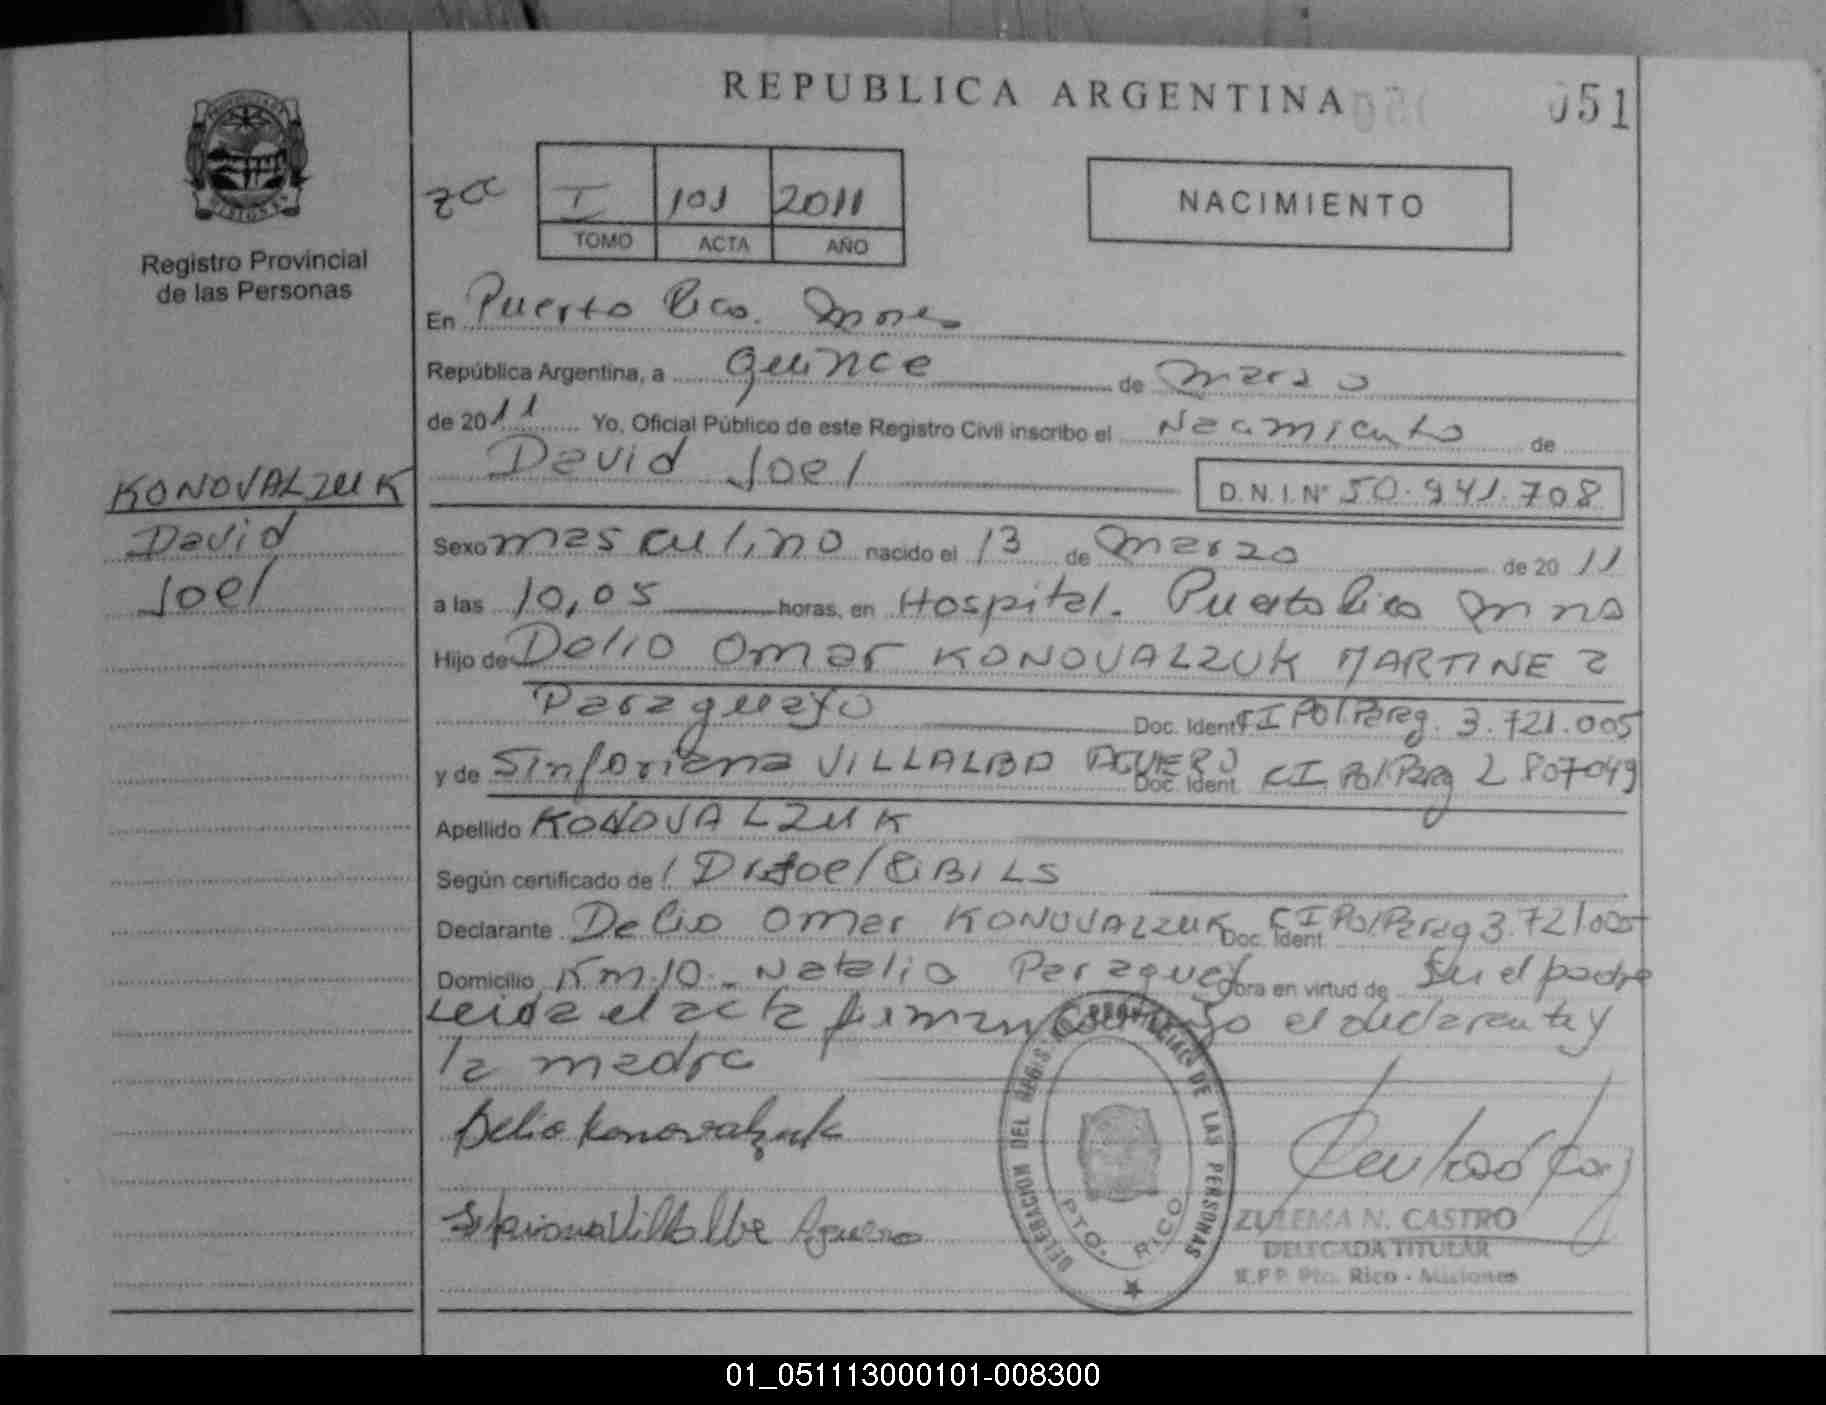 REPUBLICA ARGENTINA
051
Registro Provincial
de las Personas
I 101 2011
TOMO ACTA AÑO
NACIMIENTO
En Puerto Rico. Mnes
República Argentina, a quince de marzo
de 2011 Yo, Oficial Público de este Registro Civil inscribo el Nacimiento de
David Joel
D.N.I.Nº 50.941.708
KONOVALZUK
David
Joel
Sexo masculino nacido el 13 de marzo de 2011
a las 10,05 horas, en Hospital. Puerto Rico Mnes
Hijo de Delio Omar KONOVALZUK MARTINEZ
Paraguayo Doc. Ident. CI Pol. Parag. 3.721.005
y de Sinforiana VILLALBA AGUERO Doc. Ident. CI Pol Parag 2 807049
Apellido KONOVALZUK
Según certificado de Dr Joel
Declarante Delio Omar KONOVALZUK Doc. Ident. CI Pol Parag 3.721.005
Domicilio Km 10 - Natalio Paraguay Obra en virtud de Ser el padre
Leida el acta firman el declarante y
la madre
Delio Konovalzuk
Villalba Aguero
DELEGACION DEL REGIS. PROVINCIAL DE LAS PERSONAS
PTO. RICO
ZULEMA N. CASTRO
DELEGADA TITULAR
R.P.P. Pto. Rico - Misiones
01_051113000101-008300